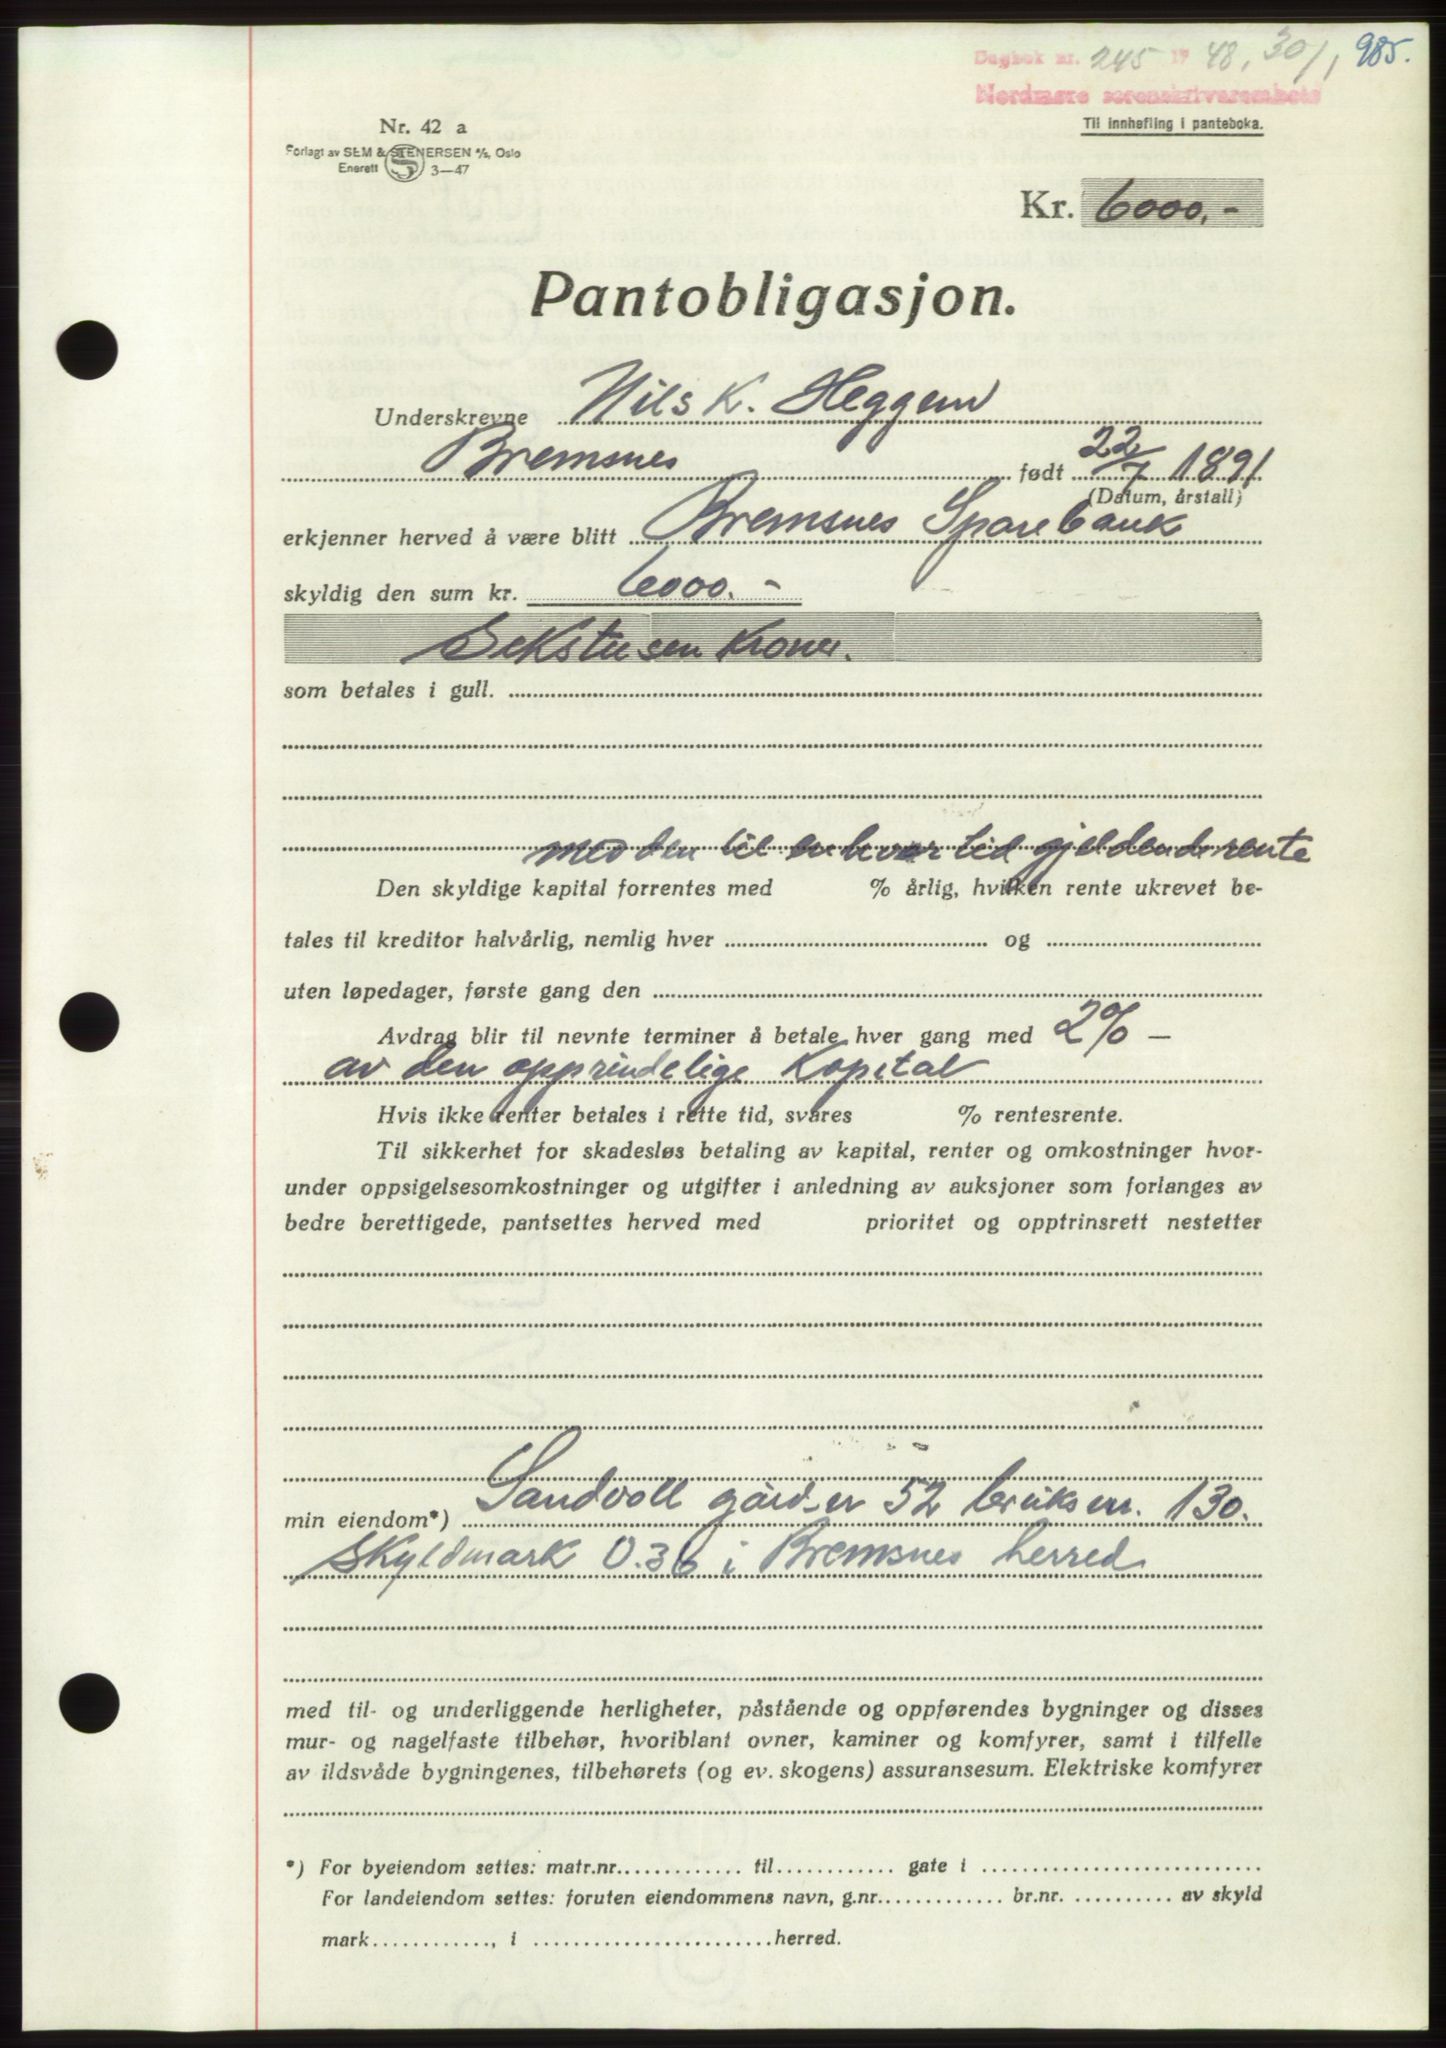 Dagbok nr. 245 1948, 30/1 985.
Nordmøre sorenskriverembete
Til innhefting i panteboka.
Nr. 42 a
Forlagt av SEM & STENERSEN A/S, Oslo
Enerett S 3—47
Kr. 6000,-
Pantobligasjon.
Underskrevne Nils K. Heggem
Bremsnes født 22/7 1891
(Datum, årstall)
erkjenner herved å være blitt Bremsnes Sparebank
skyldig den sum kr. 6000.-
Sekstusen Kroner.
som betales i gull.
med den til enhver tid gjeldende rente
Den skyldige kapital forrentes med % årlig, hvilken rente ukrevet be-
tales til kreditor halvårlig, nemlig hver og
uten løpedager, første gang den
Avdrag blir til nevnte terminer å betale hver gang med 2% —
av den opprindelige Kapital
Hvis ikke renter betales i rette tid, svares % rentesrente.
Til sikkerhet for skadesløs betaling av kapital, renter og omkostninger hvor-
under oppsigelsesomkostninger og utgifter i anledning av auksjoner som forlanges av
bedre berettigede, pantsettes herved med prioritet og opptrinsrett nestetter
min eiendom*) Sandvoll gårdsnr 52 bruksnr. 130.
Skyldmark 0.36 i Bremsnes herred
med til- og underliggende herligheter, påstående og oppførendes bygninger og disses
mur- og nagelfaste tilbehør, hvoriblant ovner, kaminer og komfyrer, samt i tilfelle
av ildsvåde bygningenes, tilbehørets (og ev. skogens) assuransesum. Elektriske komfyrer
*) For byeiendom settes: matr.nr. til gate i
For landeiendom settes: foruten eiendommens navn, g.nr. br.nr. av skyld
mark , i herred.